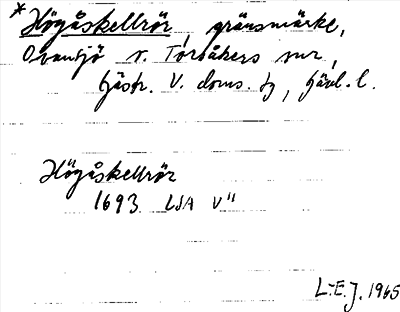 * Högåskellrör, gränsmärke,
Ovansjö o. Torsåkers snr,
Gästr. V. doms. tg, Gävl. l.
Högåskellrör
1693 LSA V"
L-E. J. 1965